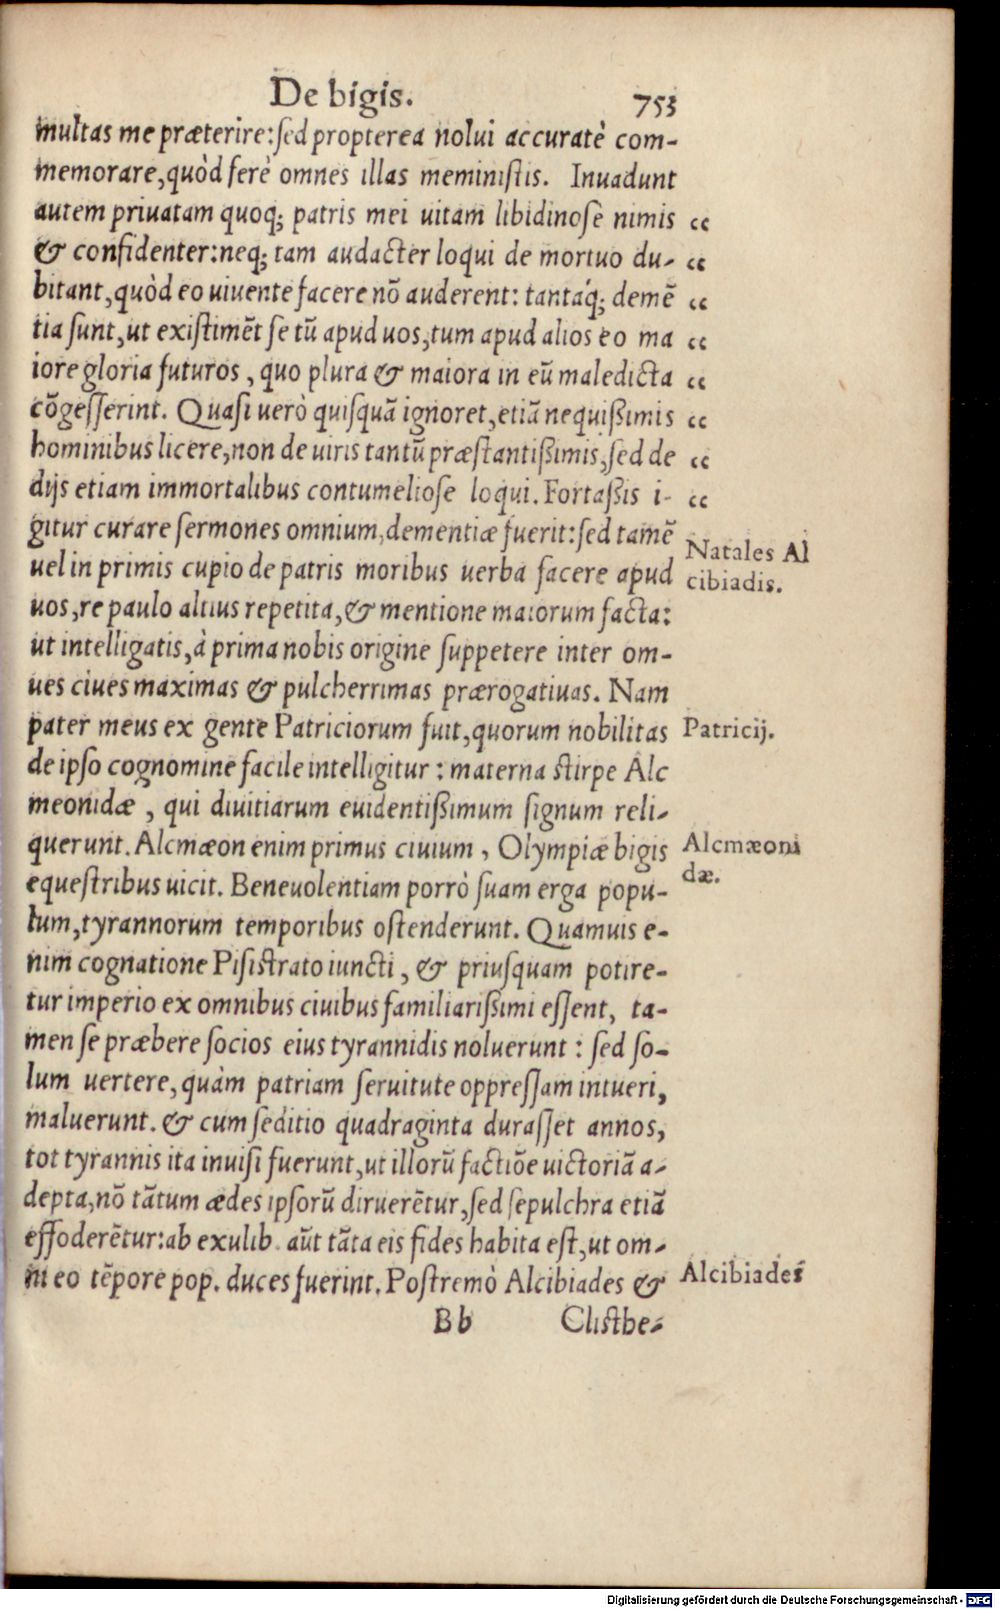 De bigis. 753
multas me præterire: sed propterea nolui accuratè com-
memorare, quòd ferè omnes illas meministis. Inuadunt
autem priuatam quoq; patris mei uitam libidinose nimis “
& confidenter: neq; tam audacter loqui de mortuo du- “
bitant, quòd eo uiuente facere nõ auderent: tantáq; demẽ “
tia sunt, ut existimẽt se tũ apud uos, tum apud alios eo ma “
iore gloria futuros, quo plura & maiora in eũ maledicta “
cõgesserint. Quasi uerò quisquã ignoret, etiã nequißimis “
hominibus licere, non de uiris tantũ præstantißimis, sed de “
dijs etiam immortalibus contumeliose loqui. Fortaßis i- “
gitur curare sermones omnium, dementiæ fuerit: sed tamẽ
Natales Al
uel in primis cupio de patris moribus uerba facere apud
cibiadis.
uos, re paulo altius repetita, & mentione maiorum facta:
ut intelligatis, à prima nobis origine suppetere inter om-
ues ciues maximas & pulcherrimas prærogatiuas. Nam
pater meus ex gente Patriciorum fuit, quorum nobilitas
Patricij.
de ipso cognomine facile intelligitur: materna stirpe Alc
meonidæ, qui diuitiarum euidentißimum signum reli-
querunt. Alcmæon enim primus ciuium, Olympiæ bigis
Alcmæoni
equestribus uicit. Beneuolentiam porrò suam erga popu-
dæ.
lum, tyrannorum temporibus ostenderunt. Quamuis e-
nim cognatione Pisistrato iuncti, & priusquam potire-
tur imperio ex omnibus ciuibus familiarißimi essent, ta-
men se præbere socios eius tyrannidis noluerunt: sed so-
lum uertere, quàm patriam seruitute oppressam intueri,
maluerunt. & cum seditio quadraginta durasset annos,
tot tyrannis ita inuisi fuerunt, ut illorũ factiõe uictoriã a-
depta, nõ tãtum ædes ipsorũ diruerẽtur, sed sepulchra etiã
effoderẽtur: ab exulib. aũt tãta eis fides habita est, ut om-
ni eo tẽpore pop. duces fuerint. Postremò Alcibiades &
Alcibiades
Bb Clisthe-
Digitalisierung gefördert durch die Deutsche Forschungsgemeinschaft - DFG